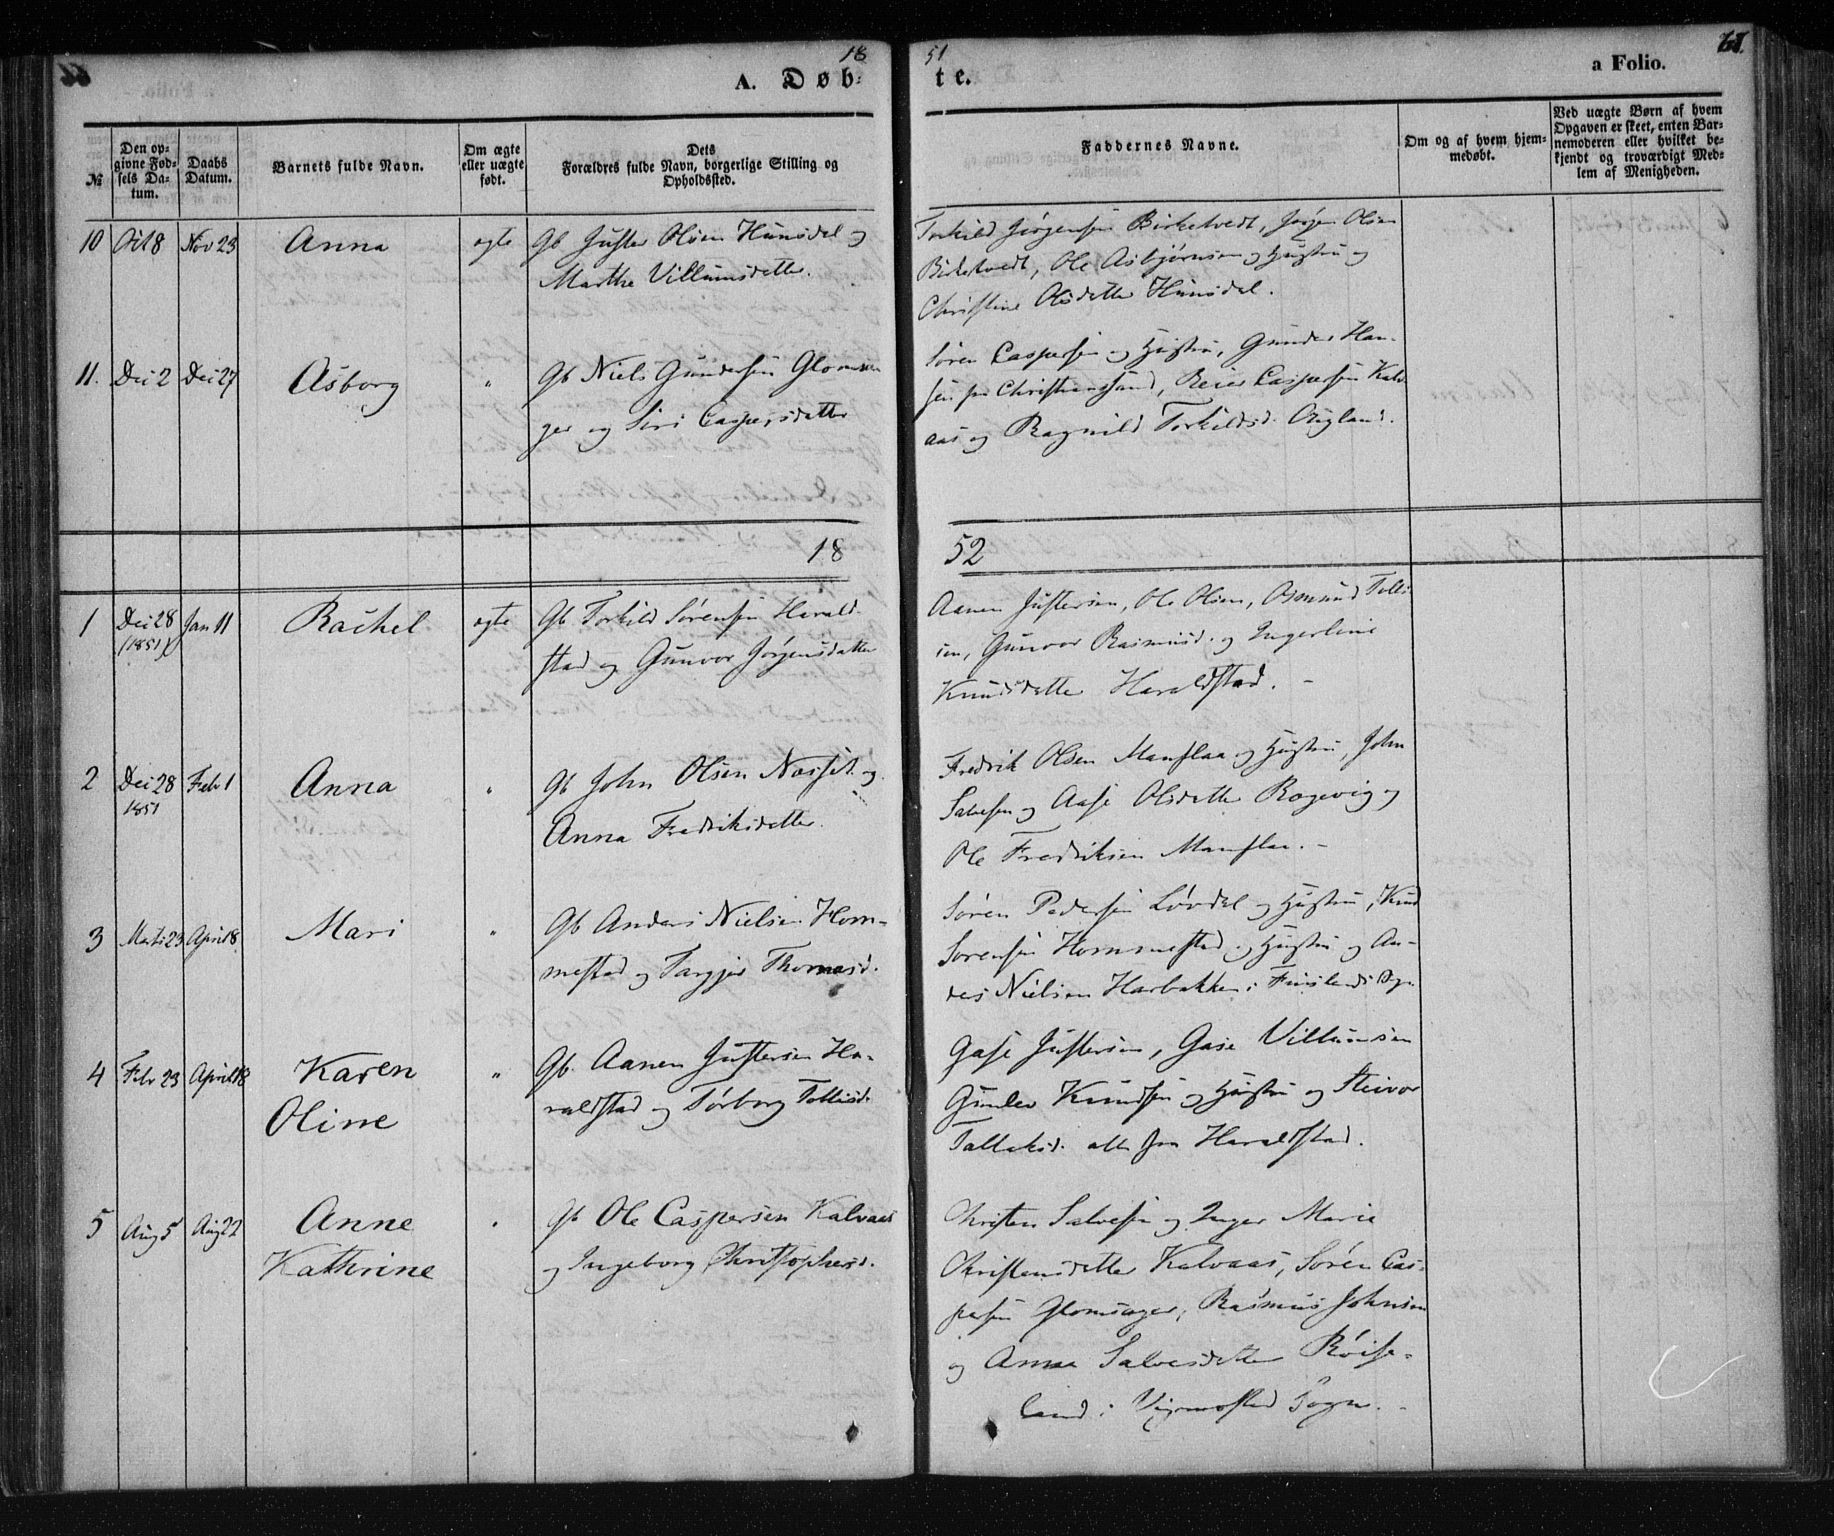 18 51
A. Døb- te.
a Folio.
№
Den opgivne Fødsels Datum.
Daabs Datum.
Barnets fulde Navn.
Om ægte eller uægte født.
Dets Forældres fulde Navn, borgerlige Stilling og Opholdssted.
Faddernes Navne.
Om og af hvem hjemmedøbt.
Ved uægte Børn af hvem Opgaven er skeet, enten Barnemoderen eller hvilket bekjendt og troværdigt Medlem af Menigheden.
10 Oct 8 Nov 23 Anna ægte Gb Juster Olsen Hunsdal og
Marthe Villumsdatter.
Torkild Jørgensen Birketvedt, Jørgen Olsen
Birketvedt, Ole Asbjørnsen og Hustru og
Christine Olsdatter Hunsdal.
11. Dec 2 Dec 27 Asborg " Gb Niels Gundersen Glomsa
ger og Siri Caspersdatter
Søren Caspersen og Hustru, Gunder Han-
sen fra Christianssand, Reier Caspersen Kalv
aas og Ragnild Torkildsd. Augland.
18 52
1 Dec 28 (1851) Jan 11 Rachel ægte Gb Torkild Sørensen Harald-
stad og Gunvor Jørgensdatter
Aanen Justersen, Ole Olsen, Osmund Tollis
sen, Gunvor Rasmusd. og Ingerline
Knudsdatter Haraldstad. -
2 Dec 28 1851 Feb 1 Anna " Gb John Olsen Nasset og
Anna Fredriksdatter.
Fredrik Olsen Manflaa og Hustru, John
Salvesen og Aase Olsdatter Rogevig og
Ole Fredriksen Manflaa. -
3 Marts 23 April 8 Mari " Gb Anders Nielsen Hom-
mestad og Targjer Thomasd.
Søren Pedersen Løvdal og Hustru, Knud
Sørensen Hommestad og Hustru og An-
ders Nielsen Harbakken i Finslands Sogn
4 Febr 23 April 18 Karen
Oline " Gb. Aanen Justersen Ha-
raldstad og Torborg Tollisd.
Gase Justersen, Gase Villumsen
Gunlev Knudsen og Hustru og Steivor
Tallaksd. alle fra Haraldstad.
5 Aug 5 Aug 22 Anne
Kathrine " Gb Ole Caspersen Kalvaas
og Ingeborg Christophersd.
Christen Salvesen og Inger Marie
Christensdatter Kalvaas, Søren Cas-
persen Glomsager, Rasmus Johnsen
og Anna Salvesdatter Røise-
land i Vigmostad Sogn. -